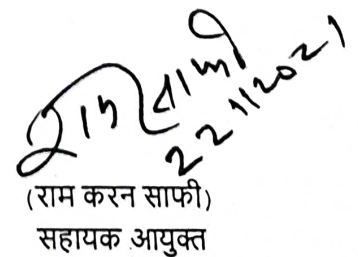 22112021
(राम करन साफी)
सहायक आयुक्त